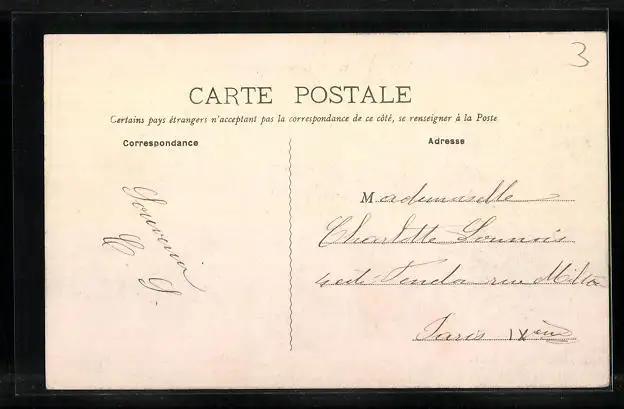 3
CARTE POSTALE
Certains pays étrangers n'acceptant pas la correspondance de ce côté, se renseigner à la Poste
Correspondance
Adresse
Souvenir
C. S.
Mademoiselle
Charlotte
rue Milton
Paris IXème